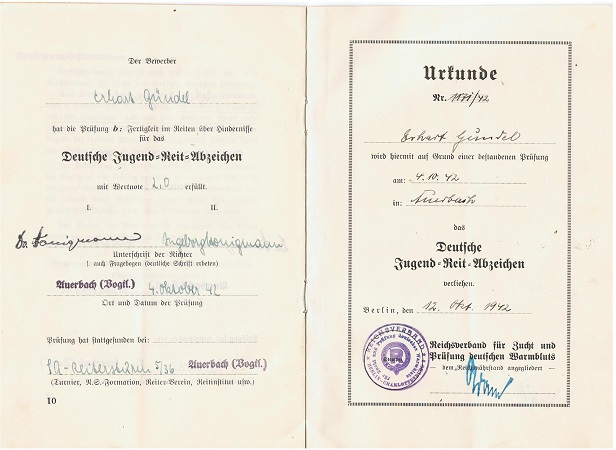 Der Bewerber
Erhart Gündel
hat die Prüfung b: Fertigkeit im Reiten über Hindernisse
für das
Deutsche Jugend=Reit=Abzeichen
mit Wertnote 2,0 erfüllt.
I. II.
Dr. Königmann Ingeborg Königmann
Unterschrift der Richter
f. auch Fragebogen (deutsche Schrift erbeten)
Auerbach (Vogtl.) 4. Oktober 42
Ort und Datum der Prüfung
Prüfung hat stattgefunden bei:
SA-Reitersturm 5/36 Auerbach (Vogtl.)
(Turnier, N.S.-Formation, Reiter-Verein, Reitinstitut usw.)
10
Urkunde
Nr. 1171/42
Erhart Gündel
wird hiermit auf Grund einer bestandenen Prüfung
am: 4.10.42
in: Auerbach
das
Deutsche
Jugend=Reit=Abzeichen
verliehen.
Berlin, den 12. Okt. 1942
REICHSVERBAND
Reichsverband für Zucht und
Prüfung deutschen Warmbluts
dem Reichsnährstand angegliedert